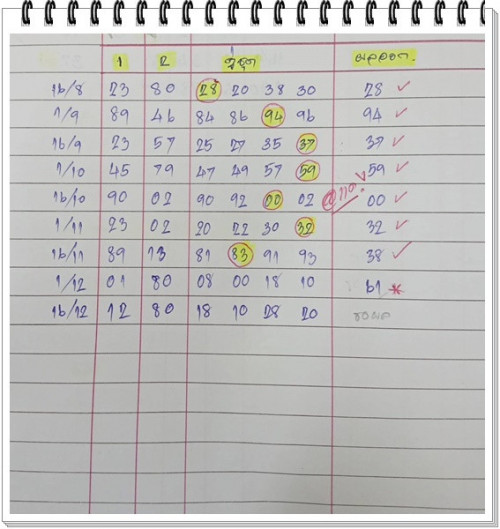 1 2 ชุด ผลออก
16/8 23 80 28 20 38 30 28 ✓
1/9 89 46 84 86 94 96 94 ✓
16/9 23 57 25 27 35 37 37 ✓
1/10 45 79 47 49 57 59 59 ✓
16/10 90 02 90 92 00 02 00 ✓
1/11 23 02 20 22 30 32 32 ✓
16/11 89 13 81 83 91 93 38 ✓
1/12 01 80 08 00 18 10 61
16/12 12 80 18 10 28 20 รอผล